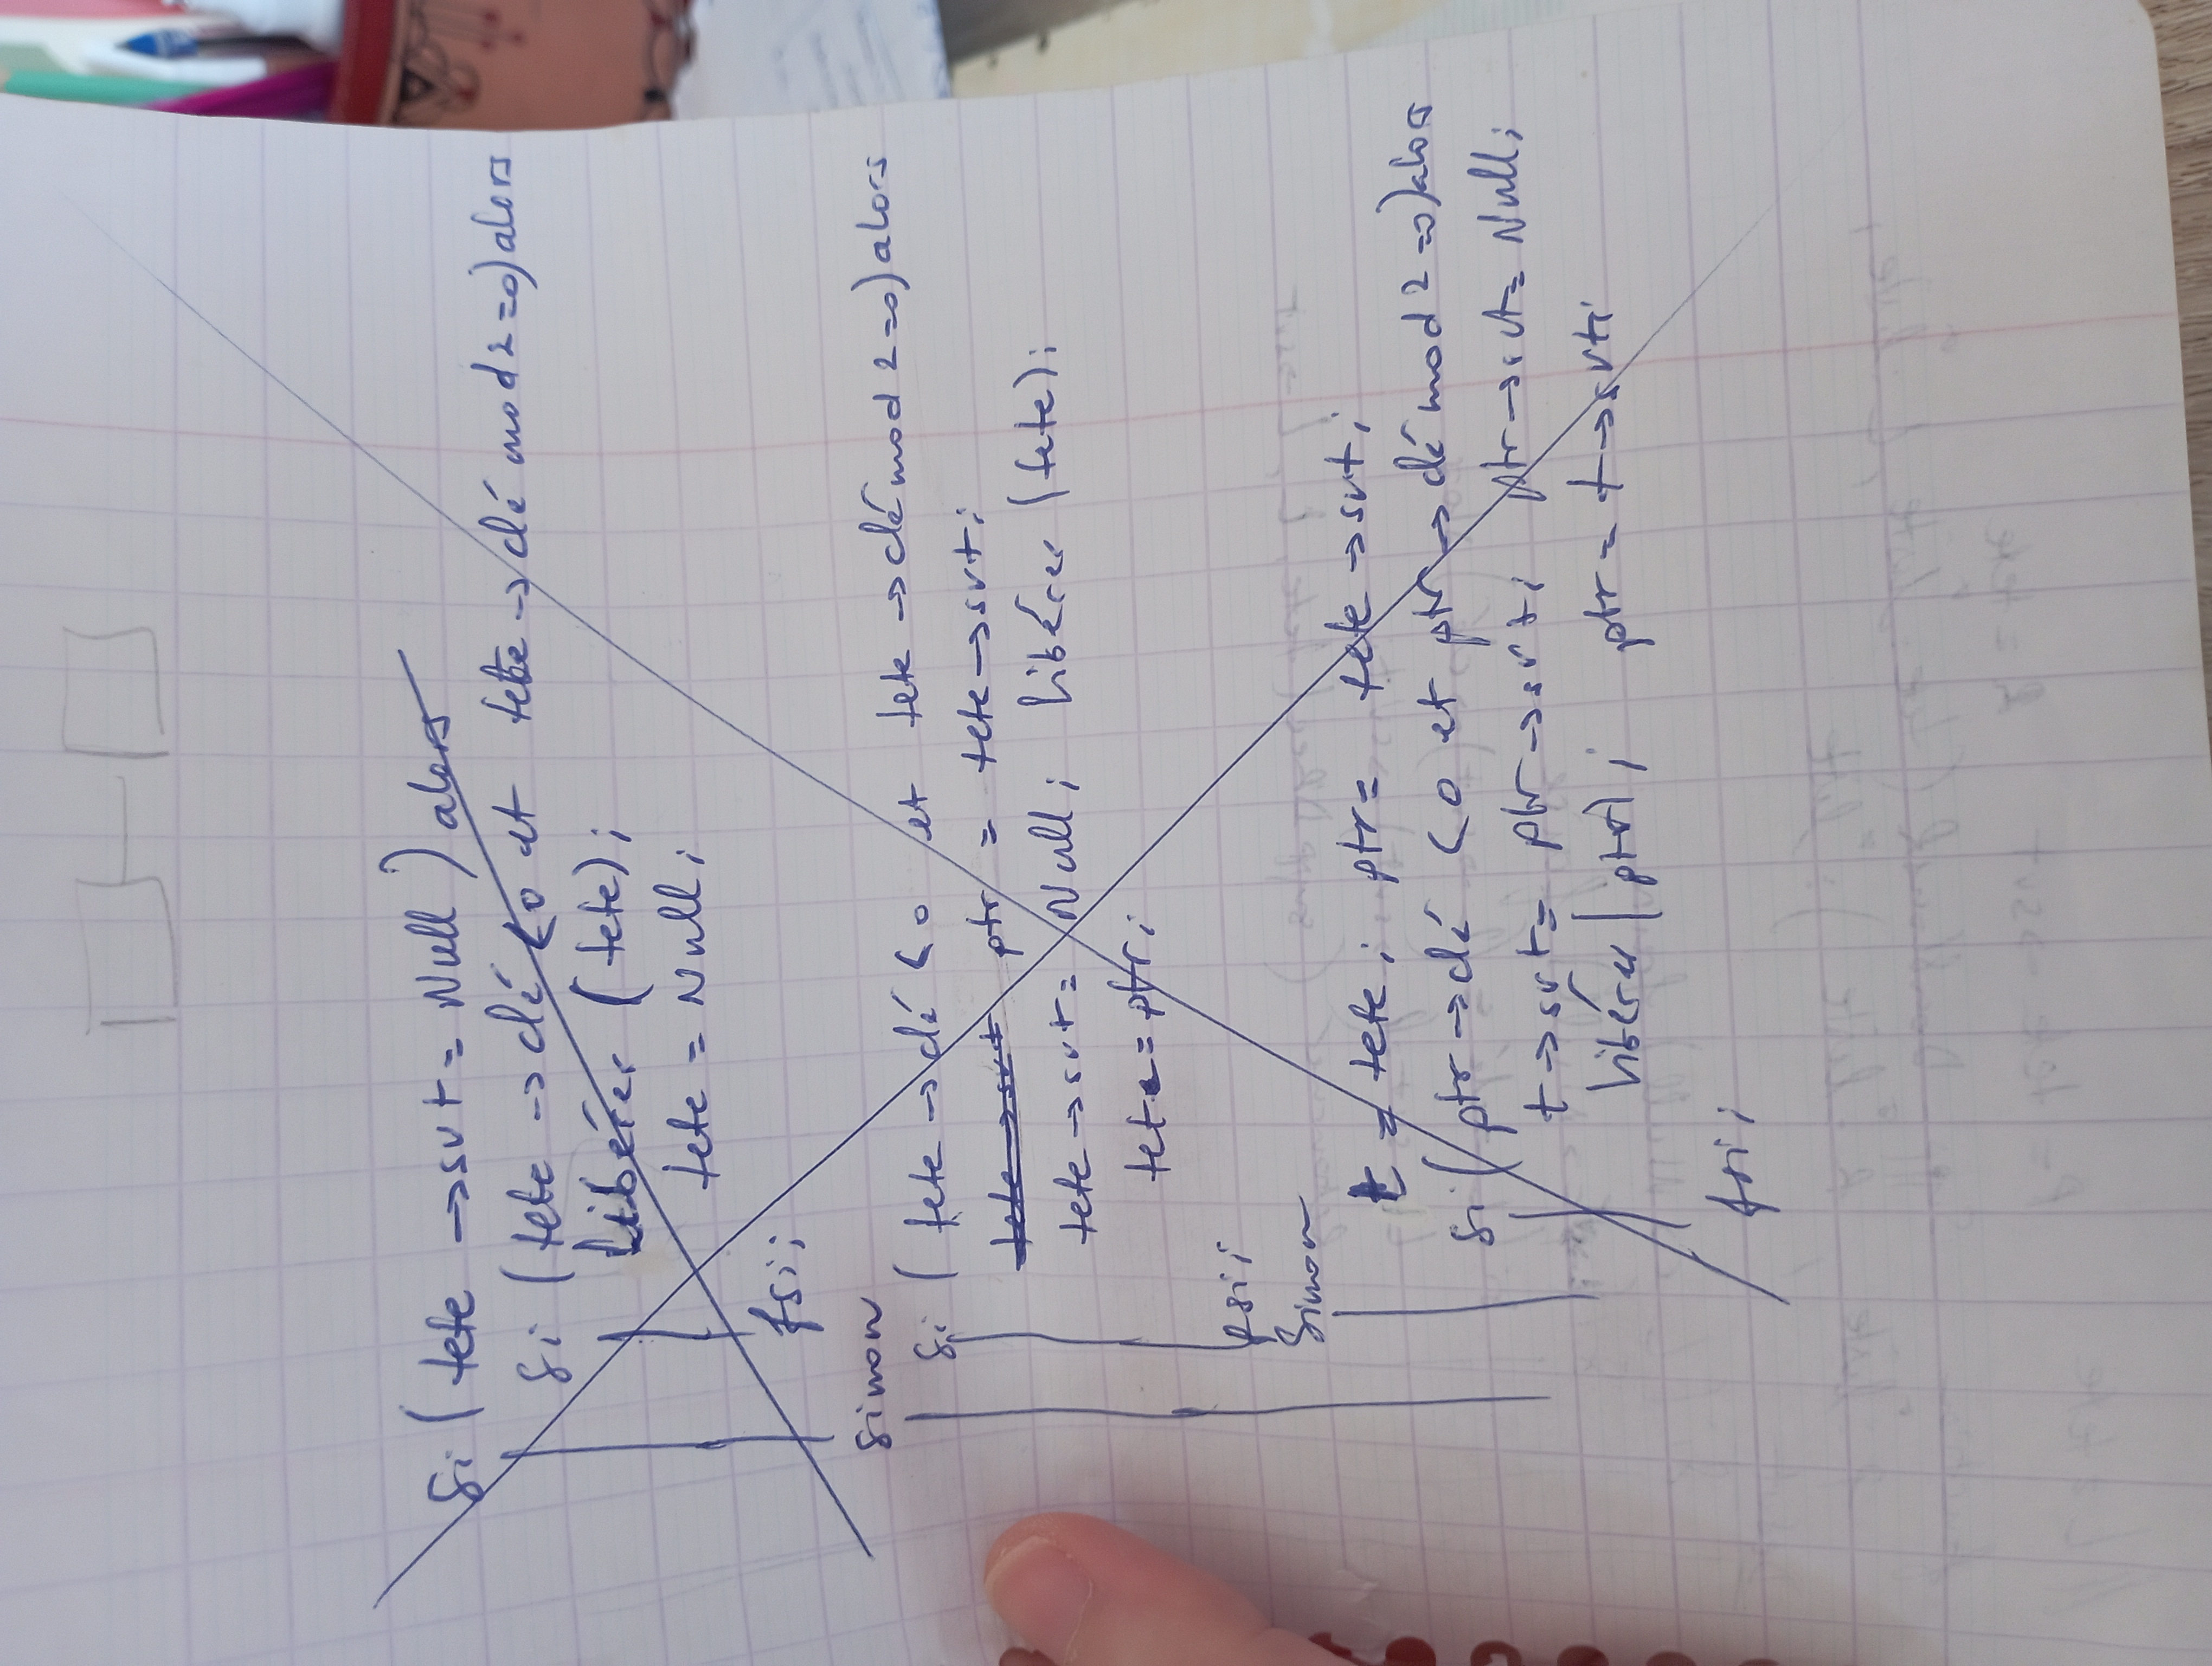 Si ( tete → svt = Null ) alors
Si ( tete → clé < 0 et tete → clé mod 2 = 0) alors
Libérer (tete);
tete = Null;
fsi;
Sinon
Si ( tete → clé < 0 et tete → clé mod 2 = 0) alors
tete → svt ptr = tete → svt;
tete → svt = Null; Libérer (tete);
tete = ptr;
fsi;
Sinon
t = tete; ptr = tete → svt;
Si ( ptr → clé < 0 et ptr → clé mod 2 = 0) alors
t → svt = ptr → svt; ptr → svt = Null;
Libérer (ptr); ptr = t → svt;
fsi;